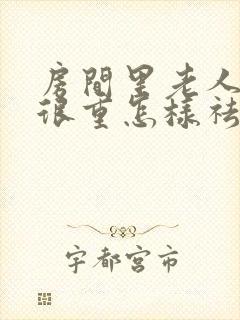 房間里老人
很重怎樣祛
宇都宮市